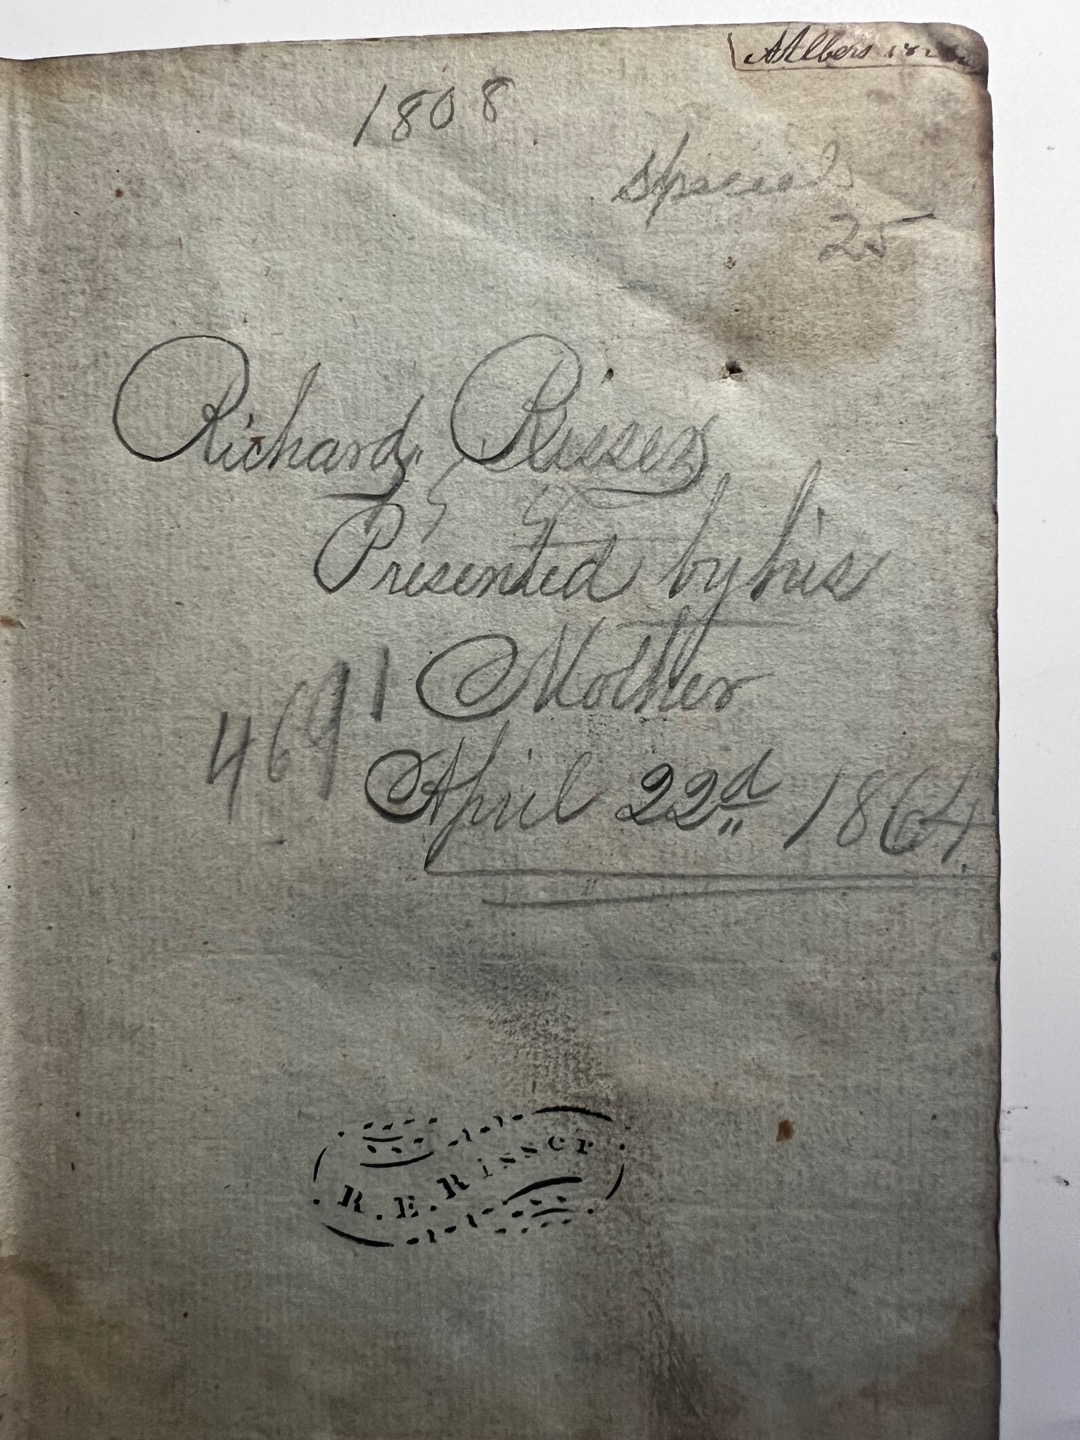 A Albers
1808
Special
25
Richard, Risser
Presented by his
Mother
4691
April 22d 1864.
R. E. Risser